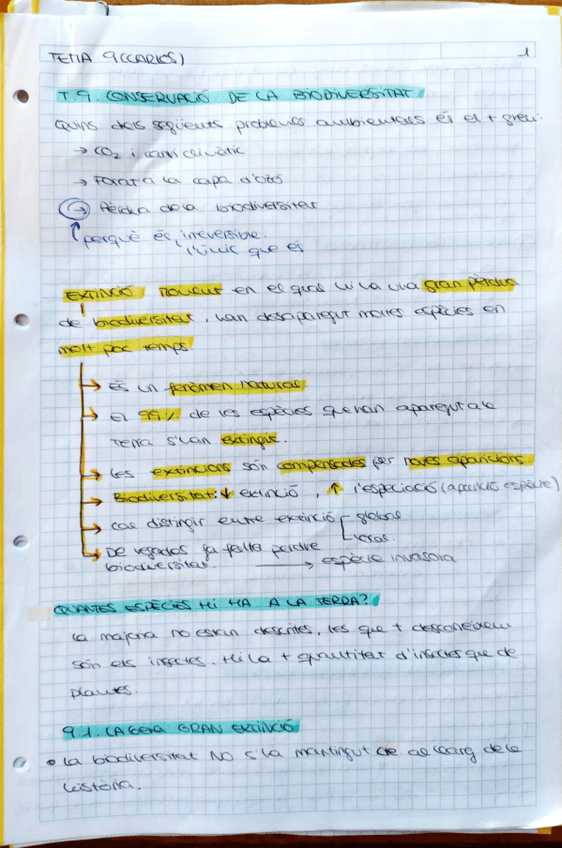 TEMA 9 (CARLOS)
1
T.9. CONSERVACIÓ DE LA BIODIVERSITAT
Quins dels següents problemes ambientals és el + greu:
→ CO2 i canvi climàtic
→ Forat a la capa d'ozó
→ Pèrdua de la biodiversitat
perquè és irreversible.
l'únic que és
EXTINCIÓ: Moment en el qual hi ha una gran pèrdua
de biodiversitat, han desaparegut moltes espècies en
molt poc temps.
→ És un fenòmen natural
→ El 99% de les espècies que han aparegut a la
Terra s'han extingit.
→ Les extincions són compensades per noves aparicions.
→ Biodiversitat: ↓ extinció, ↑ l'especiació (aparició espècie)
→ Cal distingir entre extinció global
local.
→ De vegades fa falta perdre
biodiversitat. → espècie invasora
QUANTES ESPÈCIES HI HA A LA TERRA?
La majoria no estan descrites, les que + desconeixem
són els insectes. Hi ha + quantitat d'insectes que de
plantes.
9.1. LA 6ENA GRAN EXTINCIÓ
• La biodiversitat NO s'ha mantingut cte al llarg de la
història.